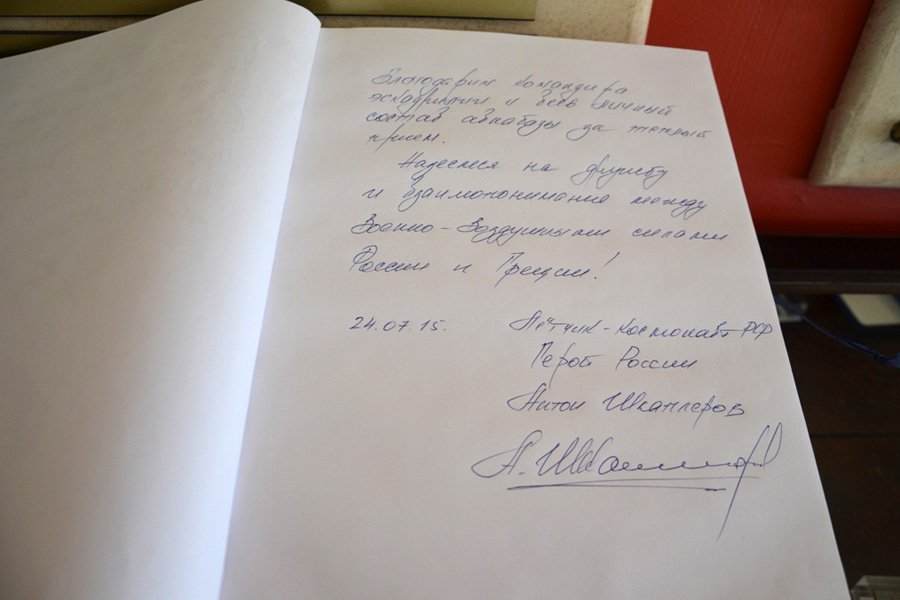 Благодарим командира
эскадрильи и весь личный
состав авиабазы за теплый
прием.
Надеемся на дружбу
и взаимопонимание между
Военно-Воздушными силами
России и Греции!
24.07.15. Лётчик-космонавт РФ
Герой России
Антон Шкаплеров
А. Шкаплеров